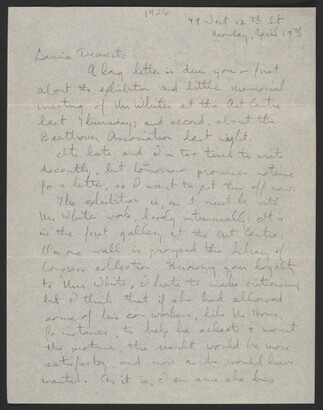 1926
49 West 12th St
Monday, April 19th
Laurie Dearest:
A long letter is due you - first
about the exhibition and little memorial
meeting of Mr White's at the Art Centre
last Thursday; and second, about the
Beethoven Association last night.
It's late and I'm too tired to write
decently, but tomorrow promises no time
for a letter, so I want to get this off now.
The exhibition is, as it must be with
Mr White's work, lovely
It's
in the first gallery at the Art Centre.
On one wall is grouped the Library of
Congress collection. Knowing your loyalty
to Mrs White, I hate to make criticisms
but I think that if she had allowed
some of his co-workers, like Mr
for instance, to help her select & mount
the pictures, the result would be more
satisfactory, and more as he would have
wanted. As it is, I'm sure she has